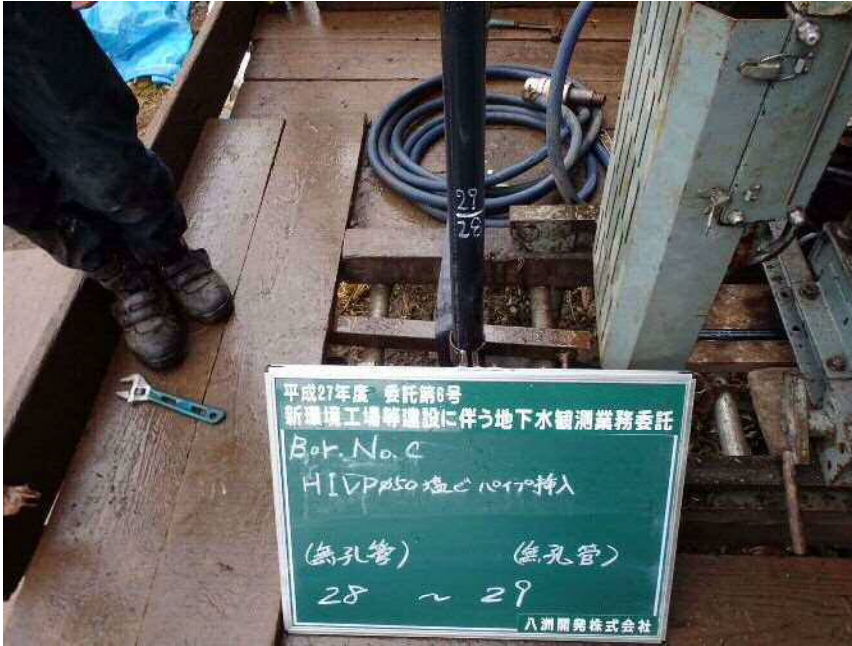 29
28
平成27年度 委託第6号
新環境工場等建設に伴う地下水観測業務委託
Bor. No. C
HIVPφ50 塩ビパイプ挿入
(無孔管) (無孔管)
28 ~ 29
八洲開発株式会社